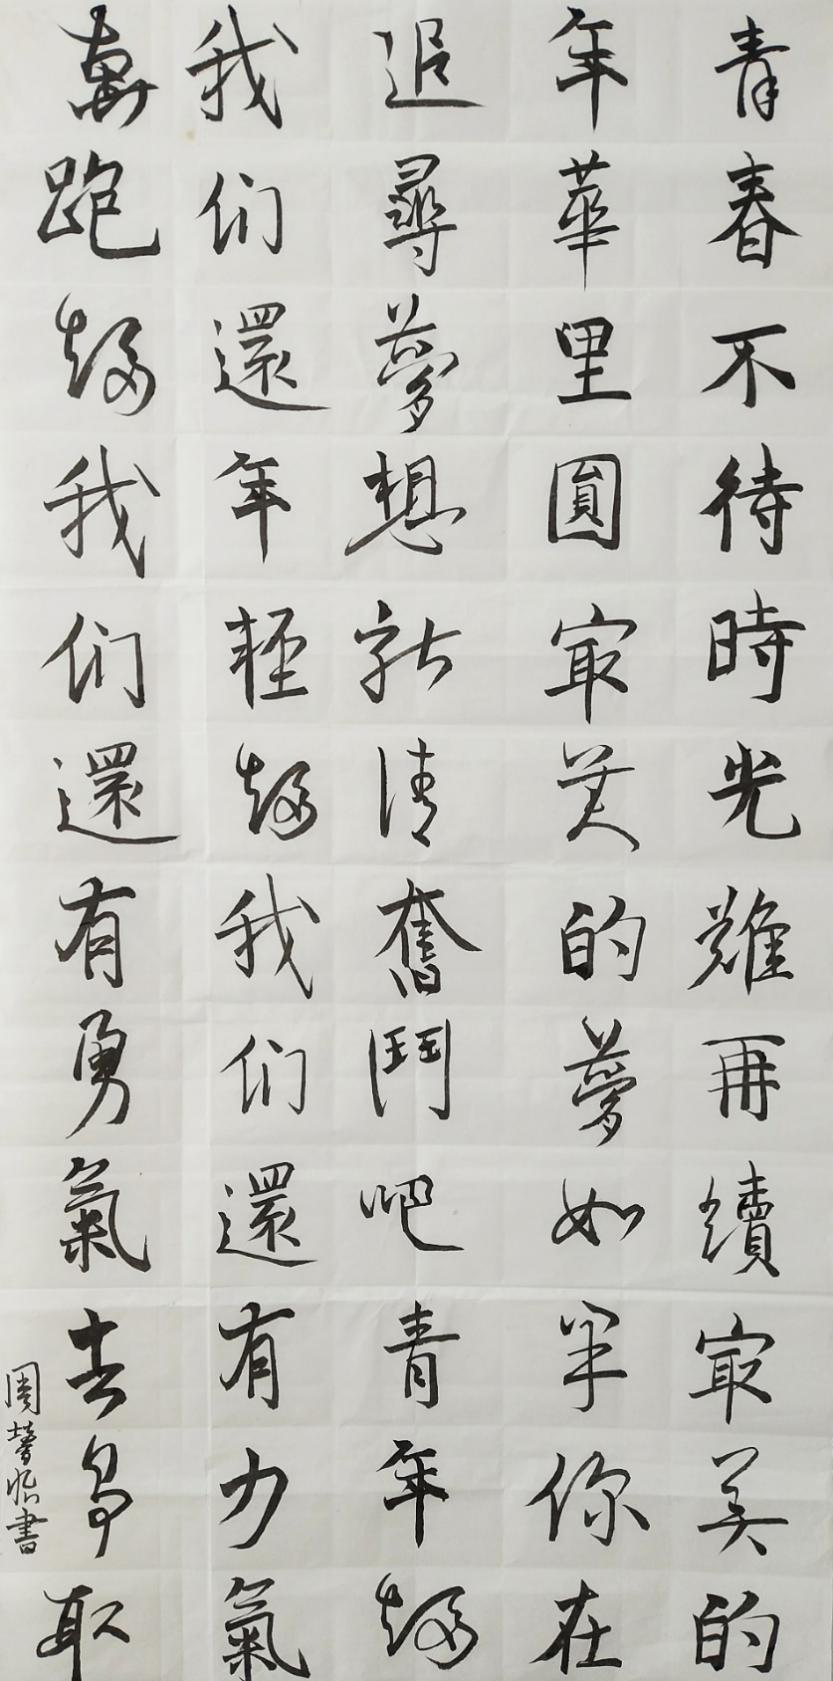 青春不待時光難再續㝡美的
年華里圓㝡美的夢如果你在
追尋夢想就請奮鬥吧青年趁
我们還年輕趁我们還有力氣
奔跑趁我们還有勇氣去爭取
周書